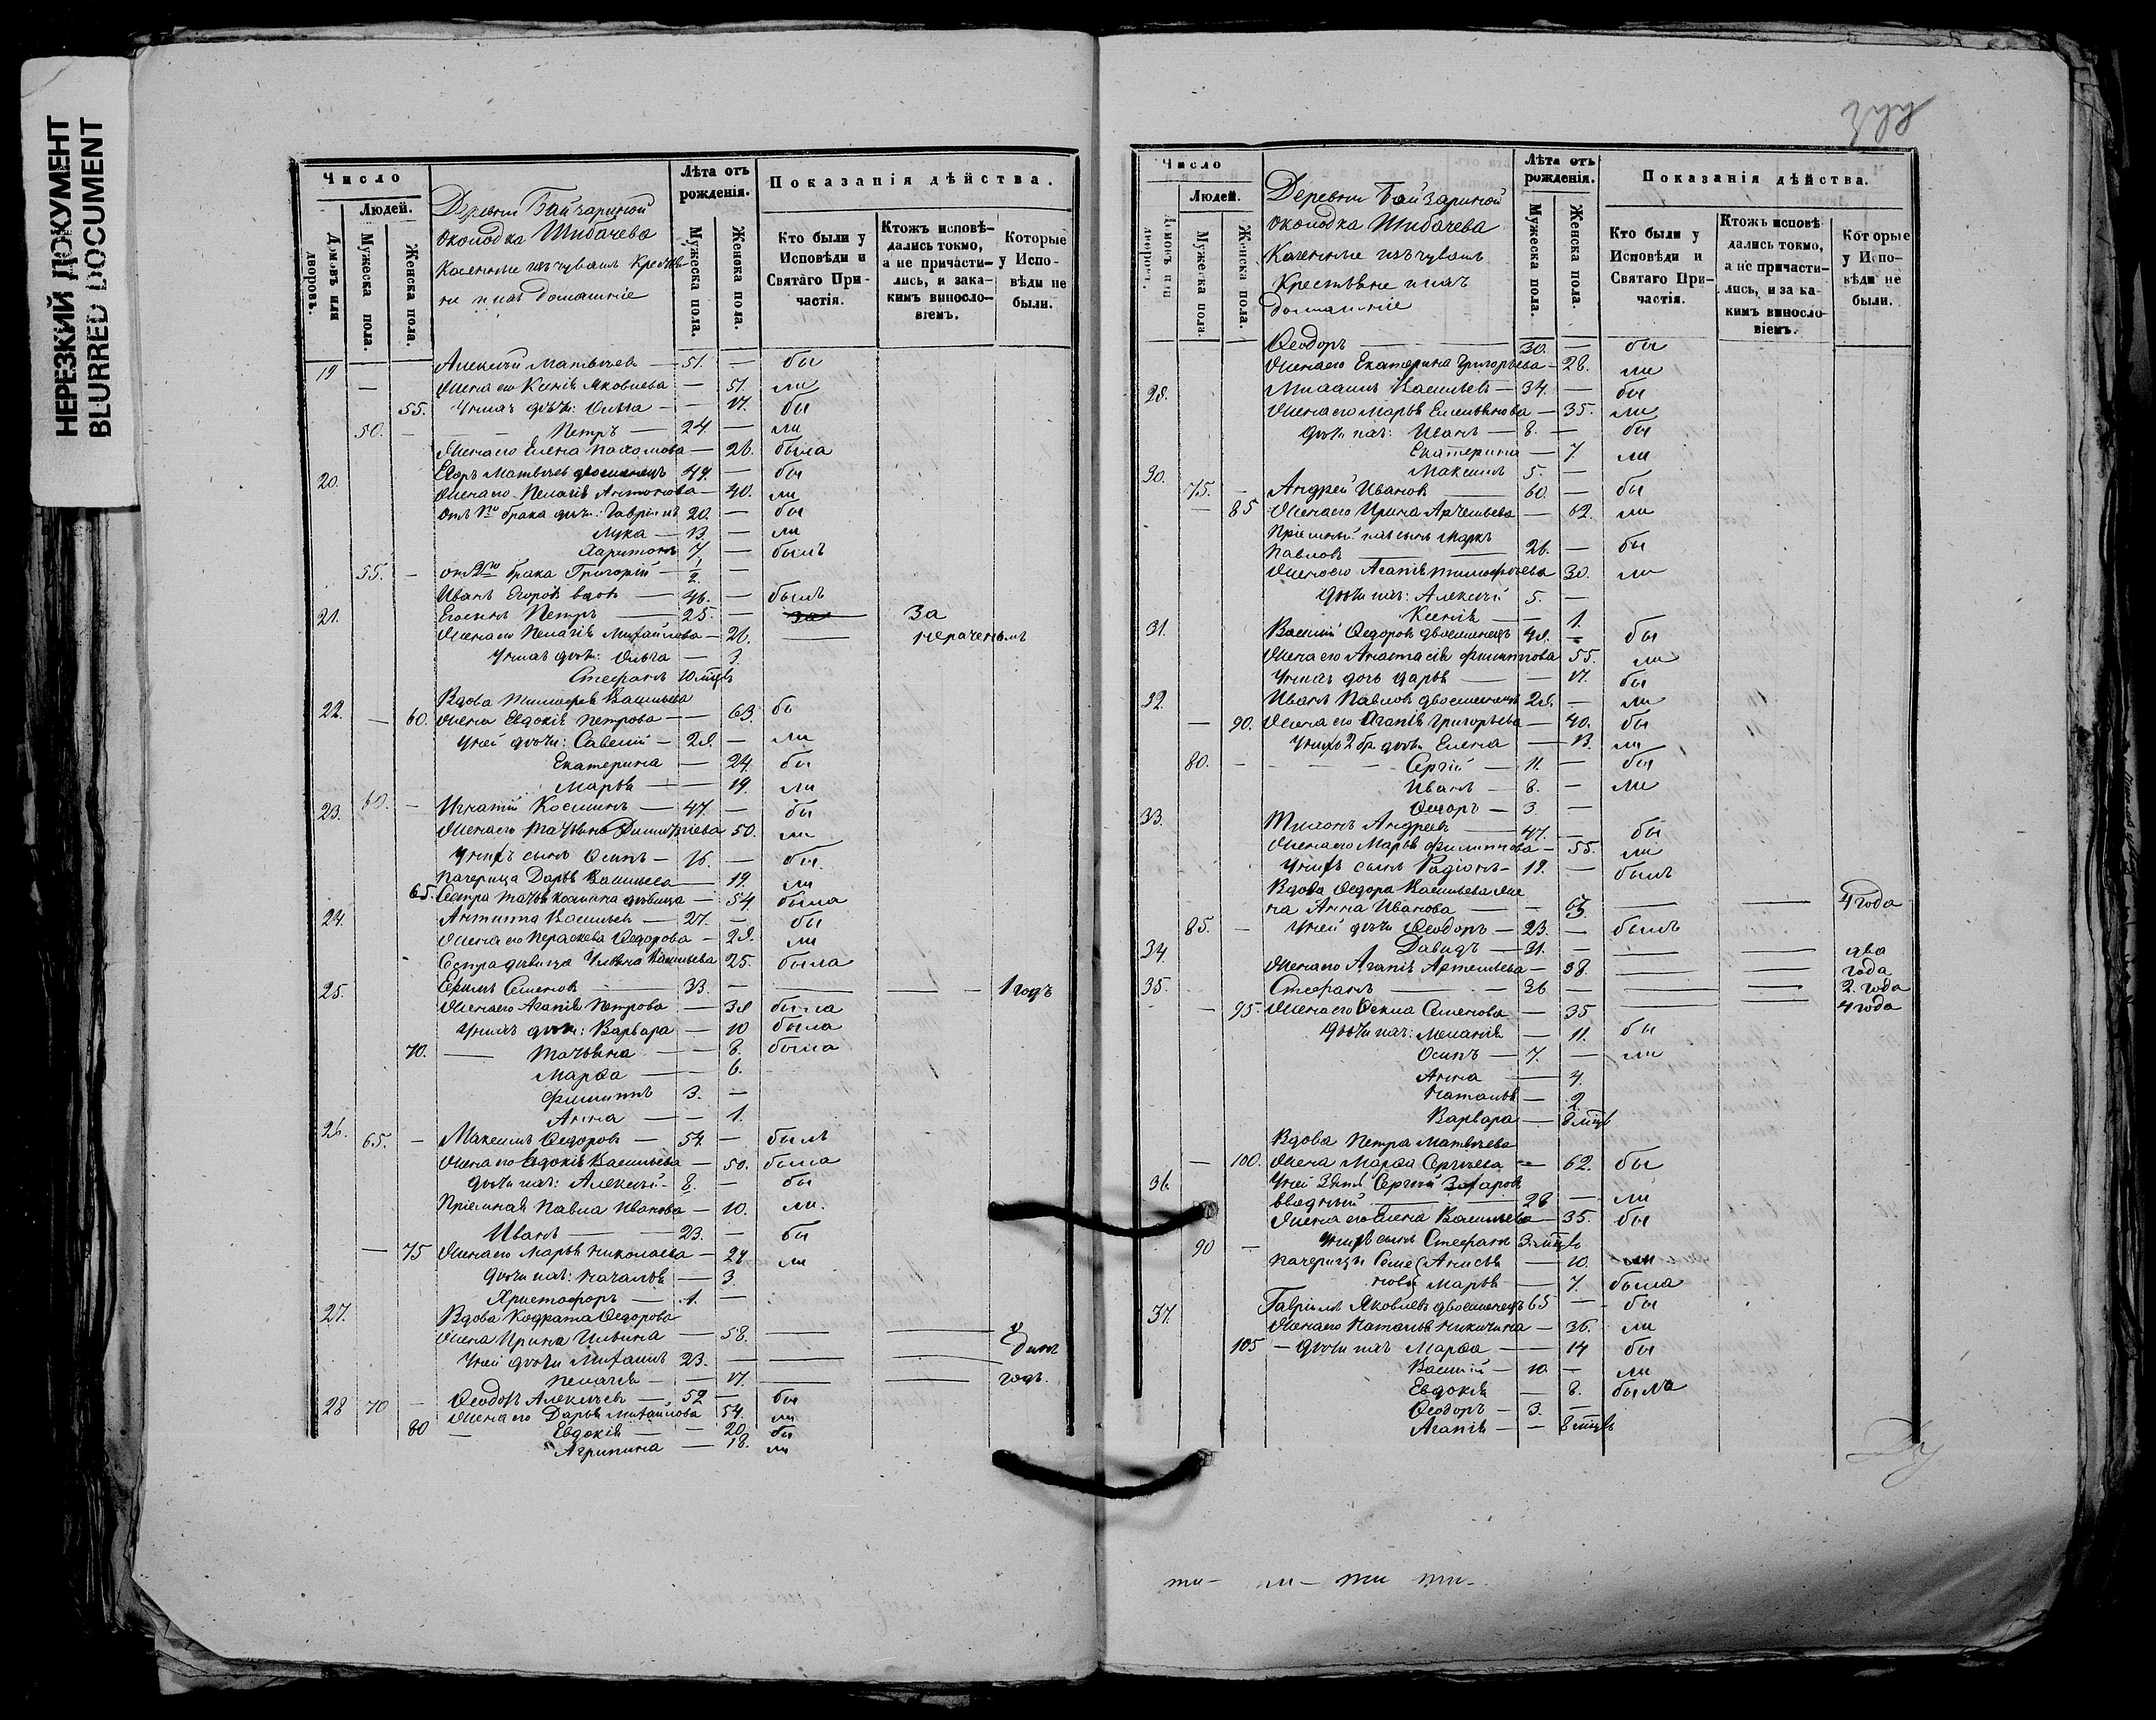 НЕРЕЗКИЙ ДОКУМЕНТ
BLURRED DOCUMENT
Число
Людей.
Домовъ или дворовъ.
Мужеска пола.
Женска пола.
Деревни Байгариной
околодка Шибачева
Казенные изъ чувашъ Крестья
не и ихъ домашніе
Лѣта отъ рожденія.
Мужеска пола.
Женска пола.
Показанія дѣйства.
Кто были у Исповѣди и Святаго При-частія.
Ктожъ исповѣ-дались токмо, а не причасти-лись, и зака-кимъ винословіемъ.
Которые у Испо-вѣди не были.
19 Алексѣй Матвѣевъ — 51. — бы
— Жена его Ксенія Яковлева — 51. ли
55. У нихъ дѣти: Ольга — — 17. бы
50. — — Петръ — 24 — ли
Жена его Елена Пахомова — 26. была
20. Егоръ Матвѣевъ двоеженецъ 44. — бы
Жена его Пелагія Антонова — 40. ли
Отъ 1го брака дѣти: Гавріилъ 20. — бы
Лука — 13. — ли
Харитонъ 7. — былъ
55. — отъ 2го брака Григорій — 1/2. —
Иванъ Егоровъ вдовъ — 46. — былъ
21. Его сынъ Петръ — 25. — За
Жена его Пелагія Михайлова — 26. — нераченіемъ
У нихъ дѣти: Ольга — 3.
Стефанъ 10 мцъ
Вдова Тимофея Васильева
22. — 60. Жена Евдокія Петрова — — 63. бы
У ней дѣти: Савелій — 28. — ли
Екатерина — 24. бы
Марья — — 19. ли
23. 60. — Игнатій Косминъ — 47. — бы
Жена его Татьяна Димитріева 50. ли
У нихъ сынъ Осипъ — 16. — бы.
Пачерица Дарья Васильева — 19. ли
65. Сестра Татья Космина дѣвица — 54. была
24. Антипа Васильевъ — 27. — бы
Жена его Пераскева Ѳедорова — 28. ли
Сестра дѣвица Ульяна Васильева 25. была
25. Ефимъ Семеновъ — 33. — — — 1 годъ
Жена его Агапія Петрова — 38 была
У нихъ дѣти: Варвара — 10 была
70. — Татьяна — — 8. была
Марѳа — — 6.
Филиппъ 3. —
Анна — — 1.
26. 65. — Максимъ Ѳедоровъ — 54. — былъ
Жена его Евдокія Васильева — 50. была
Дѣти ихъ: Алексѣй — 8. — бы
Пріемная Павла Иванова — 10. ли.
Иванъ — 23. — бы
— 75 Жена его Марья Николаева — 24 ли
Дѣти ихъ: Наталья — 3.
Христофоръ — 1. —
27. Вдова Кодрата Ѳедорова
Жена Ирина Ильина — 58. — —
У ней дѣти Михаилъ 23. — — — динъ
Пелагея — — 17. — — годъ
28 70 — Ѳеодоръ Алексѣевъ — 52 — бы
Жена его Дарья Михайлова 54. ли
80 — Евдокія — — 20. бы
Агрипина — 18. ли
Число
Людей.
Домовъ или дворовъ.
Мужеска пола.
Женска пола.
Деревни Байгариной
околодка Шибачева
Казенные изъ чувашъ
Крестьяне и ихъ
домашніе
Лѣта отъ рожденія.
Мужеска пола.
Женска пола.
Показанія дѣйства.
Кто были у Исповѣди и Святаго При-частія.
Ктожъ исповѣ-дались токмо, а не причасти-лись, и за ка-кимъ винословіемъ.
Которые у Испо-вѣди не были.
Ѳеодоръ — 30. — бы
Жена его Екатерина Григорьева — 28. ли
29. Михаилъ Васильевъ — 34. — бы
Жена его Марья Емельянова — 35. ли
Дѣти ихъ: Иванъ — 8. — бы
Екатерина — 7 ли
Максимъ 5. —
30. 75. — Андрей Ивановъ — 60. — бы
— 85 Жена его Ирина Арѳемьева — 62. ли
Пріемный ихъ сынъ Маркъ
Павловъ — — 26. — бы
Жена его Агапія Тимофѣева 30. ли
Дѣти ихъ: Алексѣй 5. —
Ксенія — — 1.
31. Василій Ѳедоровъ двоеженецъ 48. — бы
Жена его Анастасія Филиппова 55. ли
У нихъ дочь Дарья — — 17. бы
32. Иванъ Павловъ двоеженецъ 28. — ли
— 90. Жена его Агапія Григорьева — 40. бы
У нихъ 2 бр дѣти Елена — 13. ли
80. — — — — Сергій — 11. — бы
Иванъ — 8. — ли
Ѳедоръ — 3. —
33. Тихонъ Андреевъ — 47. — бы
Жена его Марья Филиппова — 55. ли
У нихъ сынъ Родіонъ — 19. — былъ
Вдова Ѳедора Васильева же
на Анна Иванова — — 63 — — 4 года
85. — У ней дѣти Ѳеодоръ — 23. — былъ
34. Давидъ — 31. — — — два
Жена его Агапія Артемьева — 38. — — года
35. Стефанъ — — 36 — — — 2. года
— 95. Жена его Ѳекла Семенова — 35 — — 4 года
Дѣти ихъ: Меланія — 11. бы
Осипъ — 7. — ли
Анна — 4.
Наталья — 2
Варвара — 8 мцъ
Вдова Петра Матвѣева
— 100. Жена Марѳа Сергѣева — 62. бы
36. У ней зять Сергей Захаровъ
вводный — 28 — ли
Жена его Елена Васильева — 35. бы
90 — У нихъ сынъ Стефанъ 3 мцъ
Пачерицы Семе Анисья — 10. ли
новы Марья — 7. была
37. Гавріилъ Яковлевъ двоеженецъ 65 — бы
Жена его Наталья Никитина — 36. ли
105 — Дѣти ихъ Марѳа — — 14 бы
Василій — 10 — ли
Евдокія — 8. была
Ѳеодоръ — 3. —
Агапія — — 8 мцъ